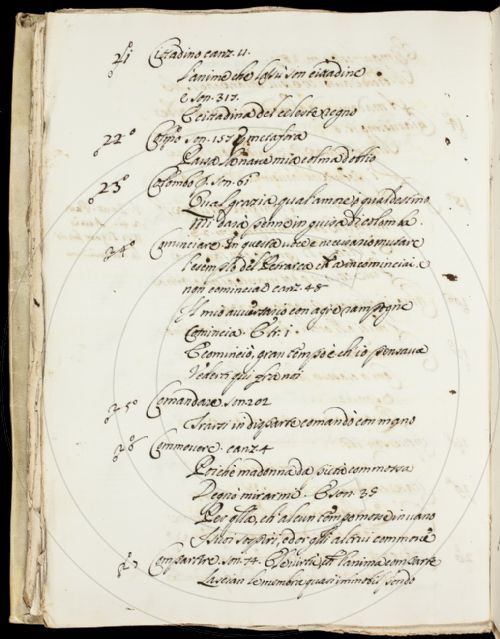 21 Cittadino canz. 11.
L'anime che lassù son cittadine
e son. 317.
Cittadina del celeste regno
22° son. 157 metafora
Passa la nave mia colma d'oblio
23° Colombo son. 61
Qual grazia, qual amore, o qual destino
Mi darà penne in guisa di colomba.
24° Cominciare in questa voce è necessario mutare
l'esempio del Petrarca ch' è incominciai, e
non cominciai canz. 48
Il mio avversario con agre rampogne
Comincia. E tr. 1.
E cominciò, gran tempo è ch' io pensava
Vederti qui fra noi
25° Comandare. son. 202
Trarsi in disparte comandò con mano
26 Commovere. canz. 4
Poiché madonna da pietà commossa
Degnò mirarmi. E son. 35
Per ch' alcun tempo mosse invano
Suoi sospiri, ed or gli altrui commove
27 Compartire. son. 74. E virtù, ch' l'anima comparte
Lascian le membra quasi immobil pondo